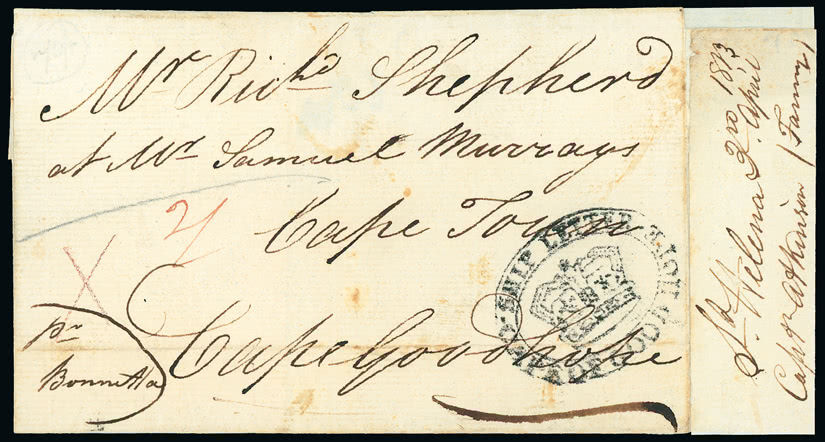 Mr Richd Shepherd
at Mr Samuel Murrays
Cape Town
Cape Good hope
pr
Bonnetta
SHIP LETTER CAPE OF GOOD HOPE
St Helena 3rd April 1813
Captn Atkinson / Fanny /